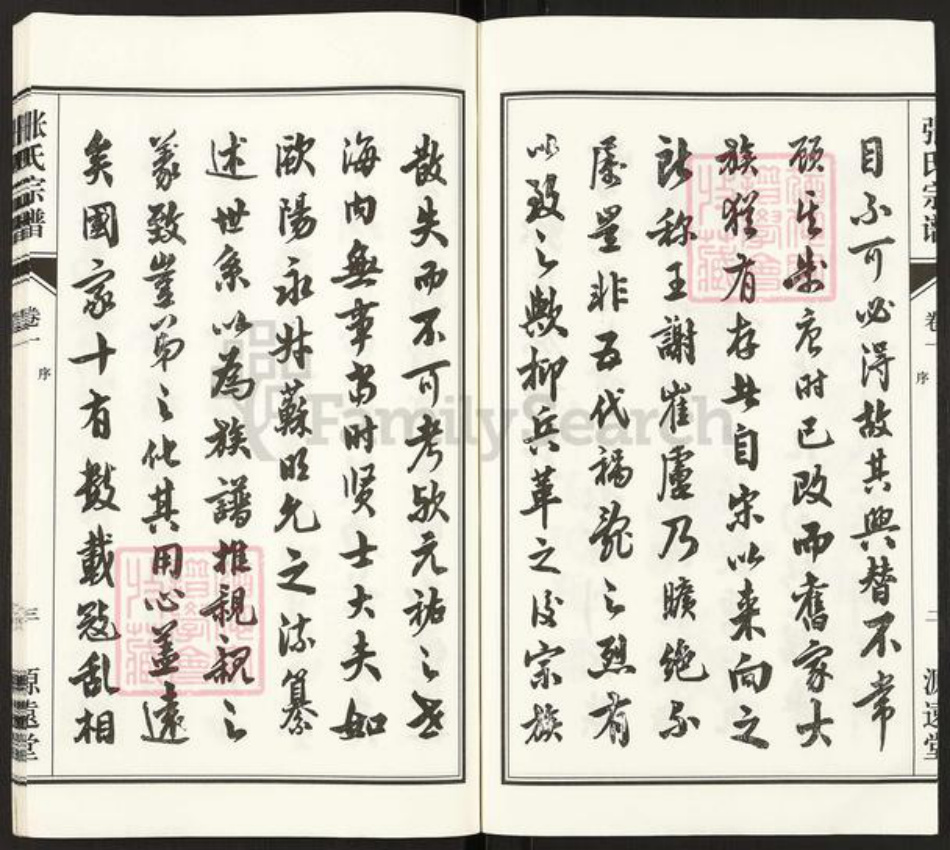 張氏宗譜 卷一 序 二 源遠堂
目不可必得故其興替不常
顧其制度时已改而舊家大
族猶有存者自宋以来向之
所称王謝崔盧乃曠絶不
屡量非五代禍乱之烈有
以致之歟抑兵革之後宗族
散失而不可考欤元祐之世
海内無事当时贤士大夫如
歐陽永叔蘇明允之流纂
述世系以為族譜推親親之
義致豈弟之化其用心盖遠
矣國家十有數載寇乱相
張氏宗譜 卷一 序 三 源遠堂
FamilySearch